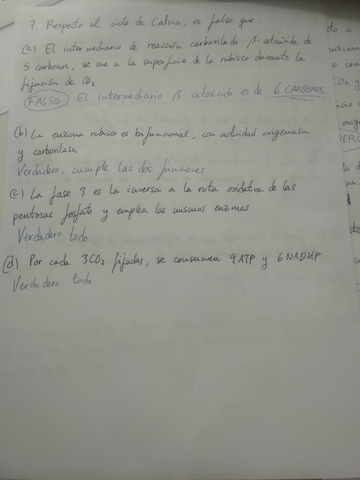 7. Respecto al ciclo de Calvin, es falso que:
(a) El intermediario de reacción carboxilado β-cetoácido, de
5 carbonos, se une a la superficie de la rubisco durante la
fijación de CO2
FALSO El intermediario β-cetoácido es de 6 CARBONOS
(b) La enzima rubisco es bifuncional, con actividad oxigenasa
y carboxilasa
Verdadero, cumple las dos funciones
(c) La fase 3 es la inversa a la ruta oxidativa de las
pentosas fosfato y emplea las mismas enzimas
Verdadero todo
(d) Por cada 3CO2 fijados, se consumen 9 ATP y 6 NADHP
Verdadero todo